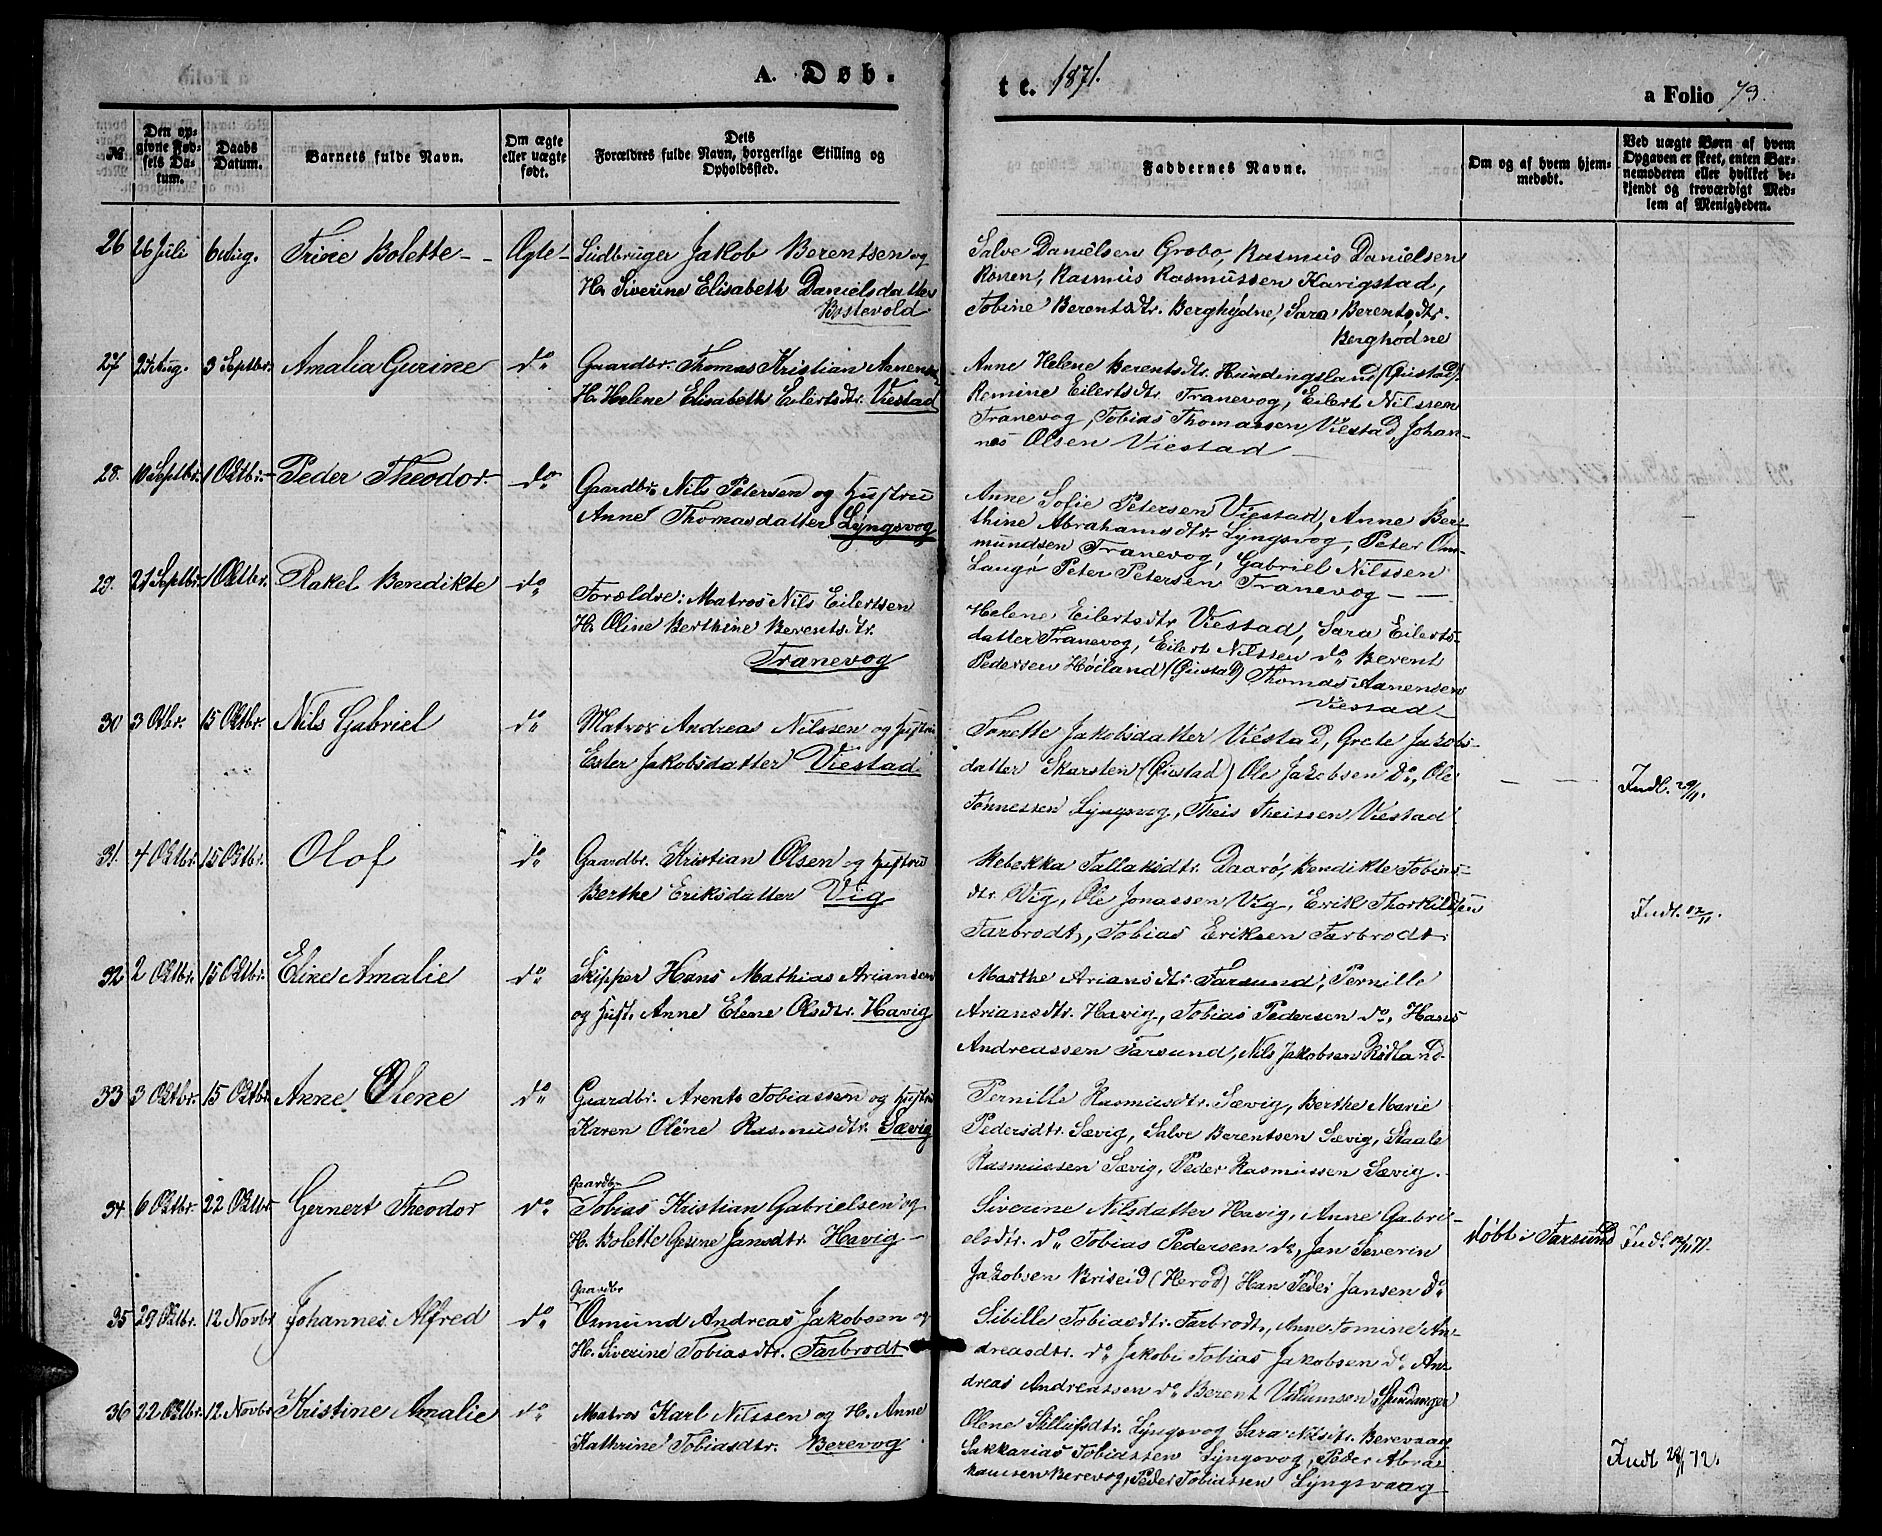 A. Døb-
te. 1871.
a Folio 73.
№
Den op-
givne Fød-
sels Da-
tum.
Daabs
Datum.
Barnets fulde Navn.
Om ægte
eller uægte
født.
Dets
Forældres fulde Navn, borgerlige Stilling og
Opholdssted.
Faddernes Navne.
Om og af hvem hjem-
medøbt.
Ved uægte Børn af hvem
Opgaven er skeet, enten Bar-
nemoderen eller hvilket be-
kjendt og troværdigt Med-
lem af Menigheden.
26 26 Juli 6 Aug. Bolette - - Ægte -
Jakob Berentsen og
H. Siverine Elisabeth Danielsdatter
Salve Danielsen Grobo, Rasmus Danielsen
Ronen, Rasmus Rasmussen Kavigstad,
Tobine Berentsdtr. Berghødne, Sara Berentsdtr.
Berghødne
27 Aug. 3 Septbr. Amalia Gurine do
Gaardbr. Thomas Kristian Aanensen
H. Helene Elisabeth Eilertsdtr. Viestad
Anne Helene Berentsdtr. Hundingsland (Qvistad)
Romine Eilertsdtr. Tranevog, Eilert Nilssen
Tranevog, Tobias Thomassen Viestad, Johan-
nes Olsen Viestad -
28. 10 Septbr. 1 Oktbr. - Peder Theodor. do
Gaardbr. Nils Petersen og Hustru
Anne Thomasdatter Lyngsvog
Anne Sofie Petersen Viestad, Anne Ber-
thine Abrahamsdtr. Lyngsvog, Peter Om-
mundsen Tranevog, Gabriel Nilssen
Langø Peter Petersen Tranevog - -
29. 21 Septbr. 1 Oktbr. Rakel Bendikte do
Forældre: Matros Nils Eilertsen
H. Oline Berthine Berentsdtr.
Tranevog
Helene Eilertsdtr Viestad, Sara Eilerts-
datter Tranevog, Eilert Nilssen do Berent
Pedersen Høiland (Qvistad) Thomas Aanensen
Viestad -
30 3 Otbr. 15 Oktbr. Nils Gabriel do
Matros Andreas Nilssen og Hustru
Ester Jakobsdatter Viestad
Tonette Jakobsdatter Viestad, Grete Jakobs-
datter Skarsten (Qvistad) Ole Jakobsen do, Ole
Tønnessen Lyngsvog, Theis Theissen Viestad
- -
Indl. 29/11.
31. 4 Oktbr. 15 Oktbr. Olof do
Gaardbr. Kristian Olsen og Hustru
Berthe Eriksdatter Vig
Rebekka Tallaksdtr. Daarø, Bendikte Tobias-
dtr. Vig, Ole Jonassen Vig, Erik Thorkildsen
Farbrodt, Tobias Eriksen Farbrodt
Indl. 12/11.
32 2 Oktbr. 15 Oktbr. Eline Amalie do
Skipper Hans Mathias Ariansen
og Hust. Anne Elene Olsdtr. Havig
Marthe Ariansdtr. Farsund, Pernille
Ariansdtr. Havig, Tobias Pedersen do, Hans
Andreassen Farsund, Nils Jakobsen Rødland
33 3 Oktbr. 15 Oktbr. Anne Olene do
Gaardbr. Arent Tobiassen og Hustru
Karen Olene Rasmusdtr. Sævig
Pernille Rasmusdtr. Sævig, Berthe Marie
Pedersdtr. Sævig, Salve Berentsen Sævig, Staale
Rasmussen Sævig, Peder Rasmussen Sævig.
34 6 Oktbr. 22 Oktbr. Gernert Theodor do
Gaardbr
Tobias Kristian Gabrielsen og
H. Bolette Gesine Jansdtr. Havig -
Siverine Nilsdatter Havig, Anne Gabri-
elsdtr. do Tobias Pedersen do, Jan Severin
Jakobsen Briseid (Herod) Han Peder Jansen do
døbt i Farsund
Indl. 12/11 71.
35 29 Oktbr. 12 Novbr Johannes Alfred do
Gaardbr
Osmund Andreas Jakobsen og
H. Siverine Tobiasdtr. Farbrodt
Sibille Tobiasdtr. Farbrodt, Anne Tomine An-
dreasdtr. do Jakob Tobias Jakobsen do An-
dreas Andreassen do Berent Villumsen
36 22 Oktbr. 12 Novbr Kristine Amalie do
Matros Karl Nilssen og H. Anne
Kathrine Tobiasdtr. Berevog
Olene Lyngsvog Sara Nilsdtr. Berevaag
Sakkarias Tobiassen Lyngsvog, Peder Abra-
hamsen Berevog, Peder Tobiassen Lyngsvaag
Indl 28/1 72.